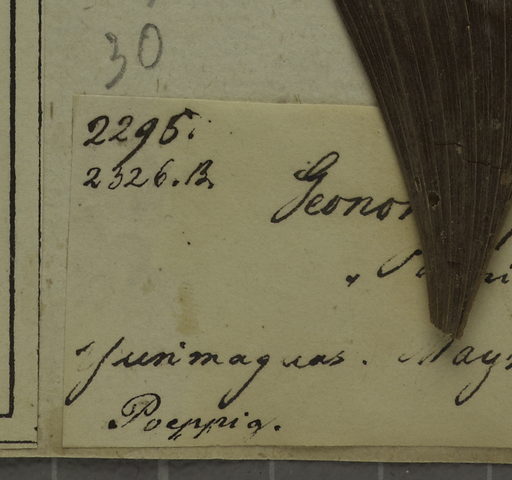 30
2295.
2326.B.
Geono
Yurimaguas. May
Poeppig.